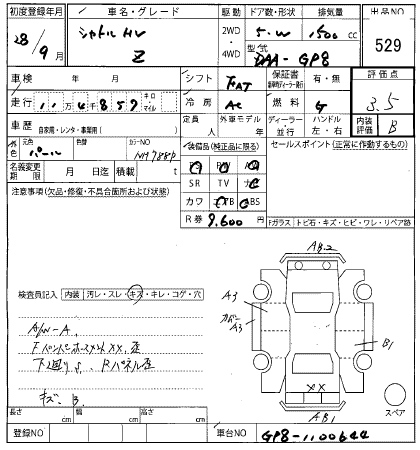 初度登録年月 車名・グレード 駆動 ドア数・形状 排気量 出品NO
28/9月 シャトルHV Z 2WD・4WD 5.W 1500cc 529
型式 DAA-GP8
車検 年 月 シフト FAT 保証書 有・無 評価点
走行 11万4857 キロ・マイル 冷房 AC 燃料 G 3.5
定員 人 外車モデル ディーラー 並行 ハンドル 左・右 内装評価 B
車歴 自家用・レンタ・事業用( )
外色 元色 パール 色替 カラーNO NH788P
装備品(純正品に限る) セールスポイント(正常に作動するもの)
名義変更期限 月 日迄 積載 t
SR TV
注意事項(欠品・修復・不具合箇所および状態)
カワ ABS
R券 9,600円
Fガラス トビ石・キズ・ヒビ・ワレ・リペア跡
AB.2
検査員記入 内装 汚レ・スレ・キズ・キレ・コゲ・穴
A3
カバーA3
B1
A/W-A.
下廻りS. Rパネル歪
キズ、B.
XX
AB1
スペア
長さ cm 幅 cm 高さ cm
登録NO 車台NO GP8-1100644